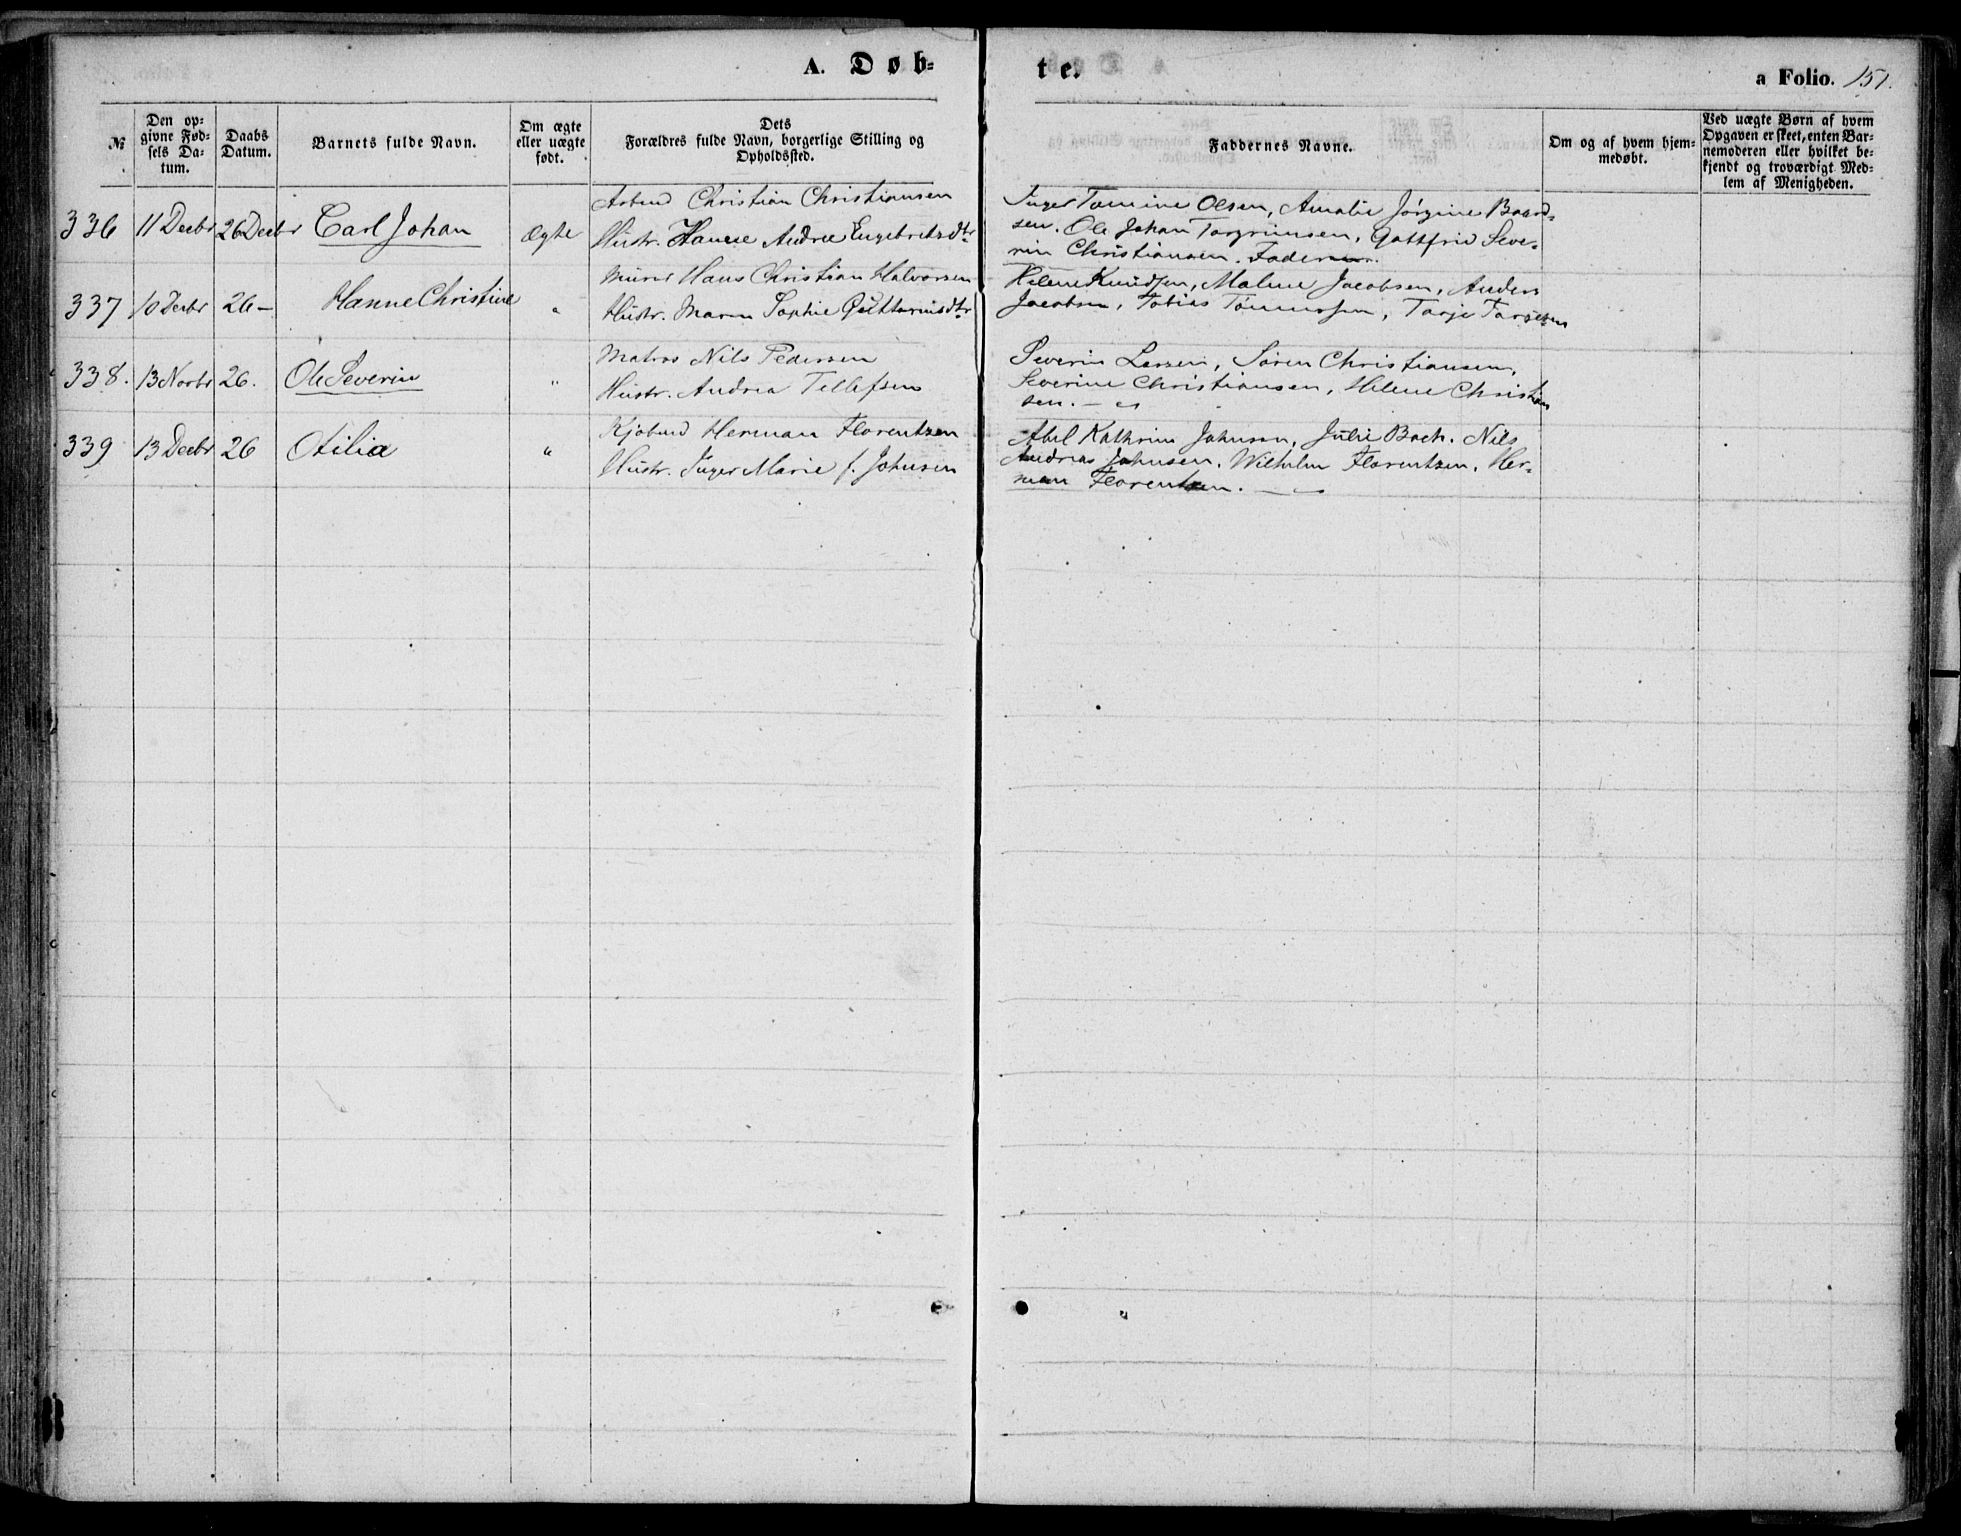 A. Døb-
te.
a Folio. 151.
№
Den op-
givne Fød-
sels Da-
tum.
Daabs
Datum.
Barnets fulde Navn.
Om ægte
eller uægte
født.
Dets
Forældres fulde Navn, borgerlige Stilling og
Opholdssted.
Faddernes Navne.
Om og af hvem hjem-
medøbt.
Ved uægte Børn af hvem
Opgaven er skeet, enten Bar-
nemoderen eller hvilket be-
kjendt og troværdigt Med-
lem af Menigheden.
336 11 Decbr 26 Decbr Carl Johan Ægte
Arbmd Christian Christiansen
Hustr. Andrea Engebritsdtr
Inger Tomine Olsen, Amalie Jørgine Baard-
sen. Ole Johan Torgrimsen, Gottfrid Seve-
rin Christiansen. Faderen.
337 10 Decbr 26 — Hanne Christine "
Murer Hans Christian Halvorsen
Hustr. Maren Sophie
Helene Knudsen, Malene Jacobsen, Anders
Jacobsen, Tobias Tønnessen, Tarje Tarjesen
338. 13 Novbr 26. Ole Severin "
Matros Nils Pedersen
Hustr. Andrea Tellefsen
Severin Larsen, Søren Christiansen,
Severine Christiansen, Helene Christian
sen. —
339 13 Decbr 26 Otilia "
Kjøbmd Herman Florentzen
Hustr. Inger Marie f. Johnsen
Abel Kathrine Johnsen, Julie Bach. Nils
Andreas Johnsen. Wilhelm Florentzen. Her-
man Florentzen. —